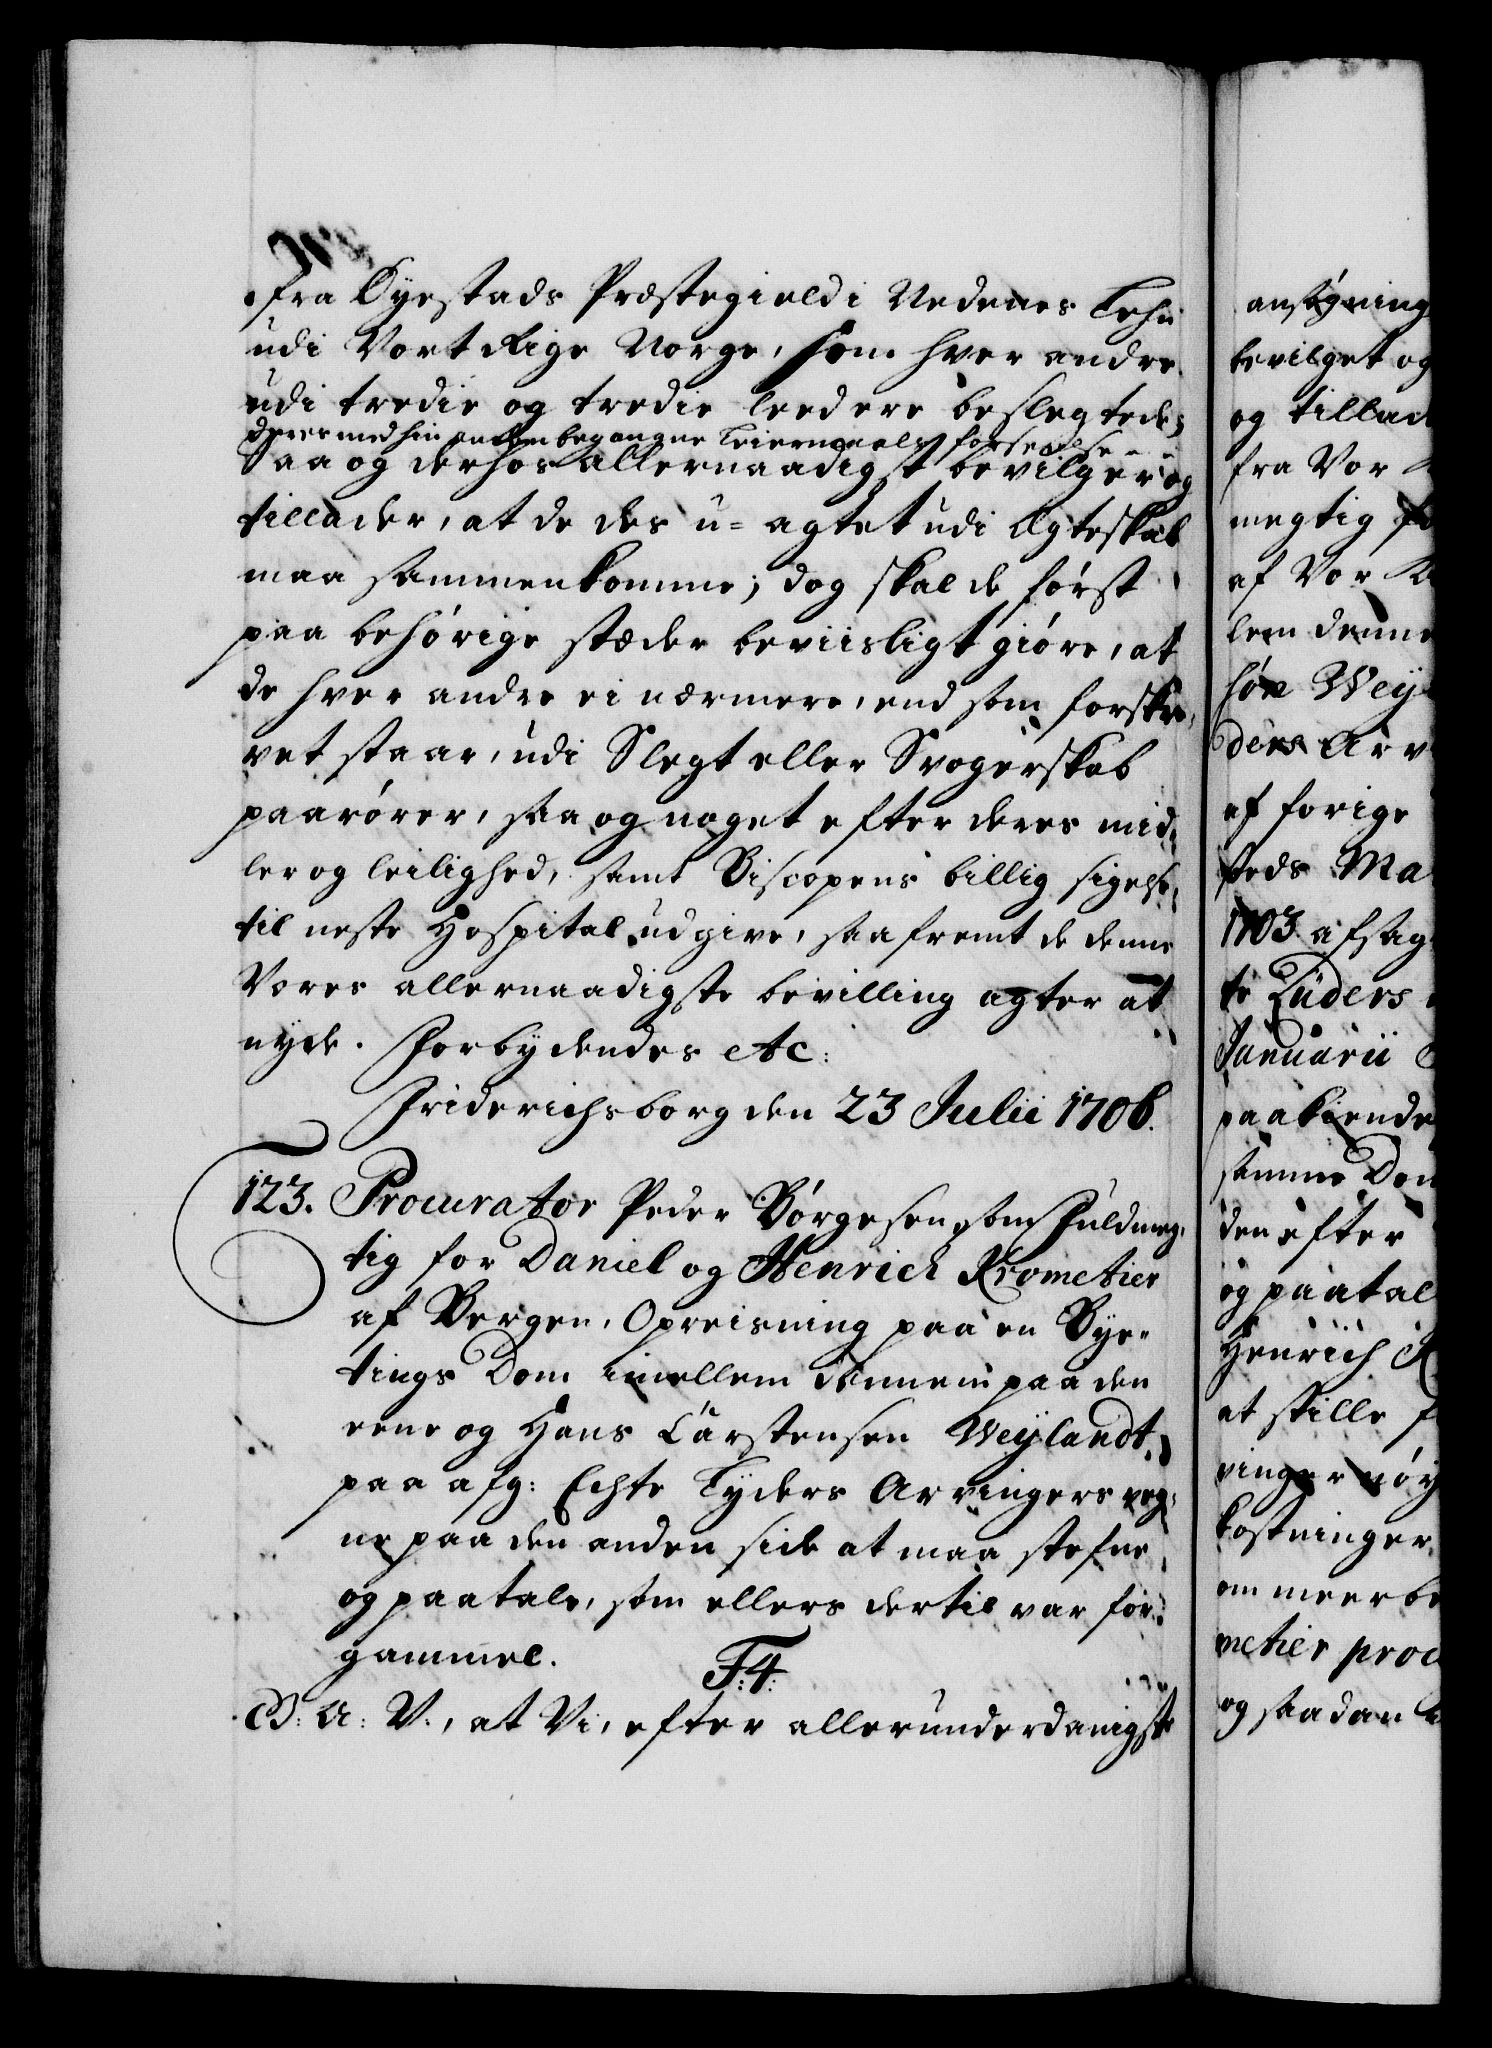 fra Øyestads Præstegield i Nedenes Lehn
udi Vort Rige Norge, som hver andre
udi tredie og tredie leed ere beslegtede,
deres med hin anden begangne Leiermaals forseelse
Saa og derhos allernaadigst bevilger og
tillader, at de des u-agtet udi Egteskab
maa sammenkomme; dog skal de først
paa behørige stæder beviisligt giøre, at
de hver andre ei nærmere, end som forskre,
vet staar, udi Slegt eller Svogerskab
paarører, saa og noget efter deres mid,
ler og leilighed, samt Biscopens billig sigelse,
til neste Hospital udgive, saafremt de denne
Vores allernaadigste bevilling agter at
nyde. Forbydendes etc:
Friderichsborg den 23 Julii 1706.
123. Procurator Peder Børgesen, som Fuldmeg,
tig for Daniel og Henrich Krometier
af Bergen, Opreisning paa en Bye-
tings Dom imellem dennem paa den
eene og Hans Carstensen Weylandt,
paa afg: Echte Lyders Arvingers veg,
ne paa den anden side at maa stefne
og paatale, som ellers dertil var for
gammel.
F:4:
G: A: V:, at Vi, efter allerunderdanigste
ansøgning
bevilget og
og tillad
fra Vor
megtig
af Vor
lem denne
før Wey
ders Arv
af forige
steds Ma
1703 afsag
te Lüders
Januarii
paakiende
samme Dom
den efter
og paatal
Henrich K
at stille f
vinger nøy
kostninger
om meer be
metier proc
og saadan